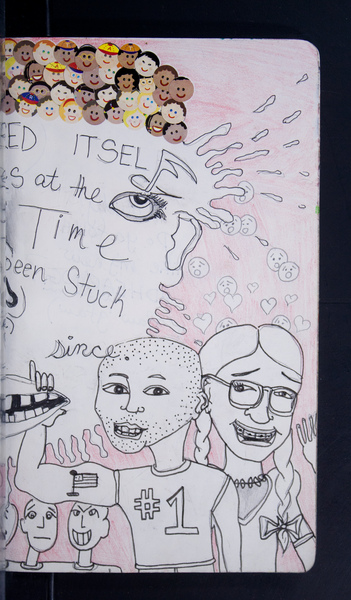 EED ITSELF
es at the
Time
been Stuck
since
#1